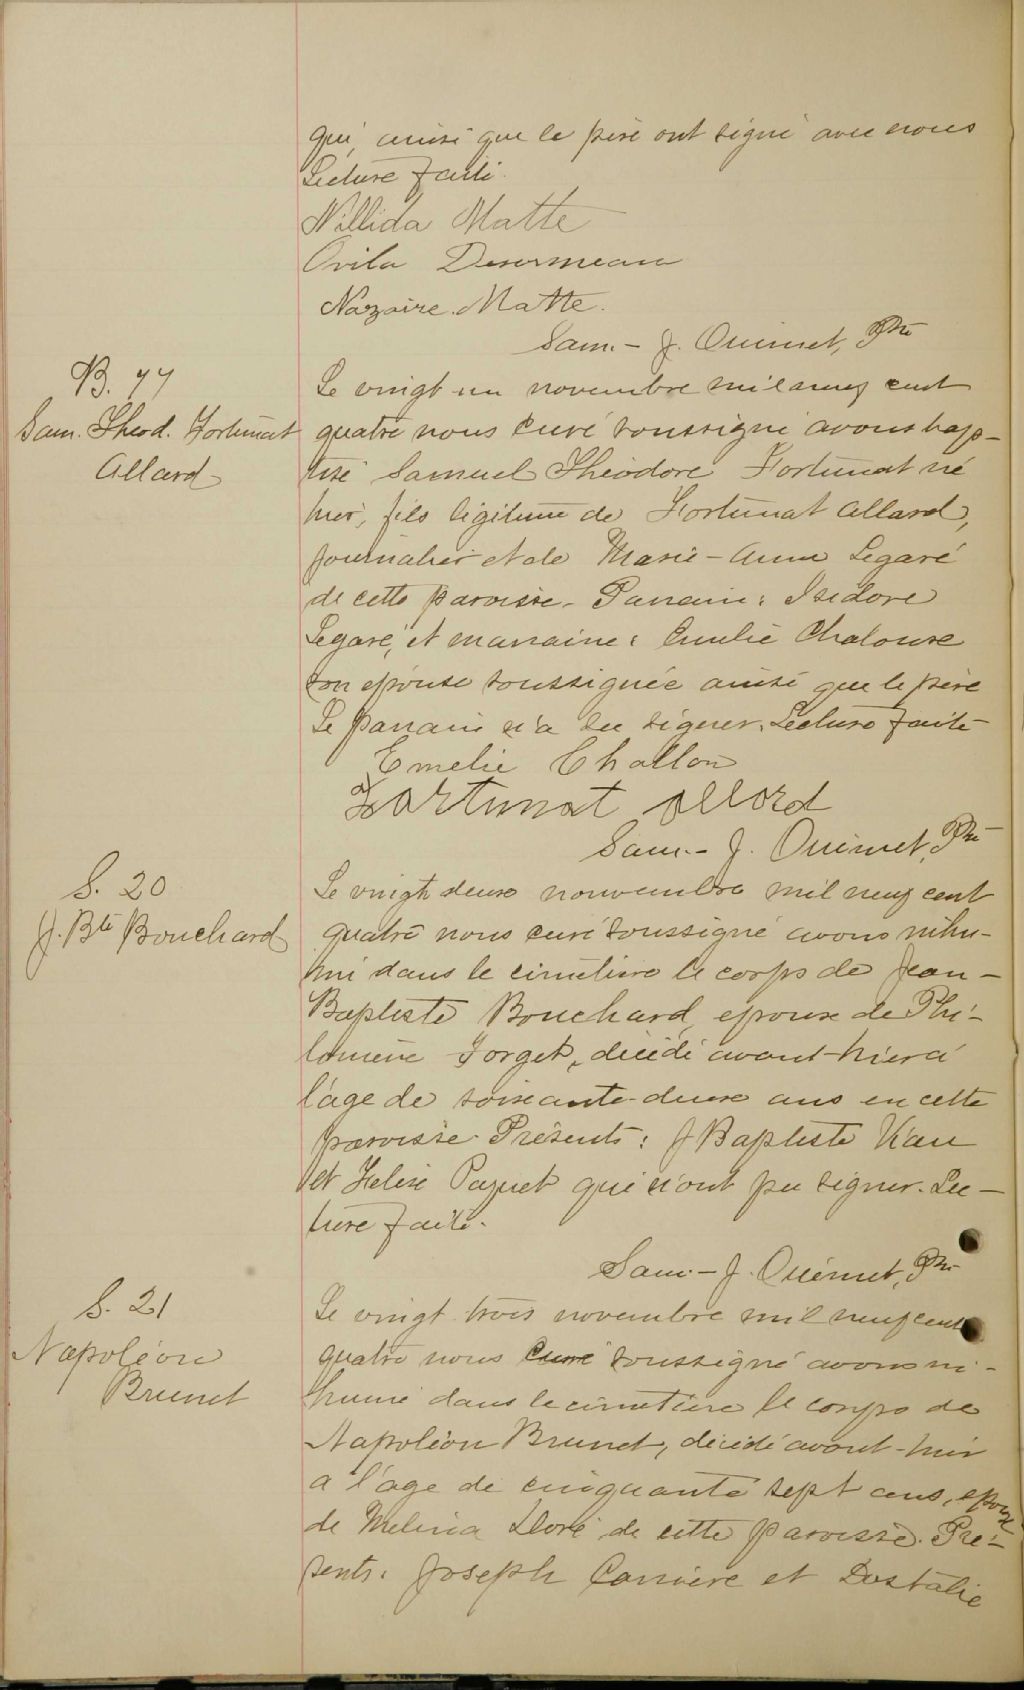 qui, ainsi que le père ont signé avec nous
Lecture faite.
Nillida Matte
Ovila Desormeau
Nazaire Matte.
Sam. - J. Ouimet, Ptre
B. 77
Sam. Theod. Fortunat
Allard
Le vingt un novembre mil neuf cent
quatre nous curé soussigné avons bap-
tisé Samuel Théodore Fortunat né
hier, fils légitime de Fortunat Allard,
journalier et de Marie-Anne Legaré
de cette paroisse. Parrain: Isidore
Legaré, et marraine: Emelie Chalouse
son épouse soussignée ainsi que le père
Le parrain n'a su signer. Lecture faite
Emelie Challon
Fortunat Allard
Sam. - J. Ouimet, Ptre
S. 20
J. Bte Bouchard
Le vingt deux nouvembre mil neuf cent
quatre nous curé soussigné avons inhu-
mé dans le cimetière le corps de Jean-
Baptiste Bouchard, epoux de Phi-
lomène Forget, décédé avant-hier à
l'âge de soixante-deux ans en cette
paroisse. Présents: J Baptiste
et Paquet qui n'ont pu signer. Lec-
ture faite.
Sam. - J. Ouimet, Ptre
S. 21
Napoléon
Brunet
Le vingt trois novembre mil neuf cent
quatre nous curé soussigné avons in-
humé dans le cimetière le corps de
Napoléon Brunet, décédé avant-hier
a l'âge de cinquante sept ans, epoux
de Melina Doré de cette paroisse. Pré-
sents: Joseph Carrière et Dostalie